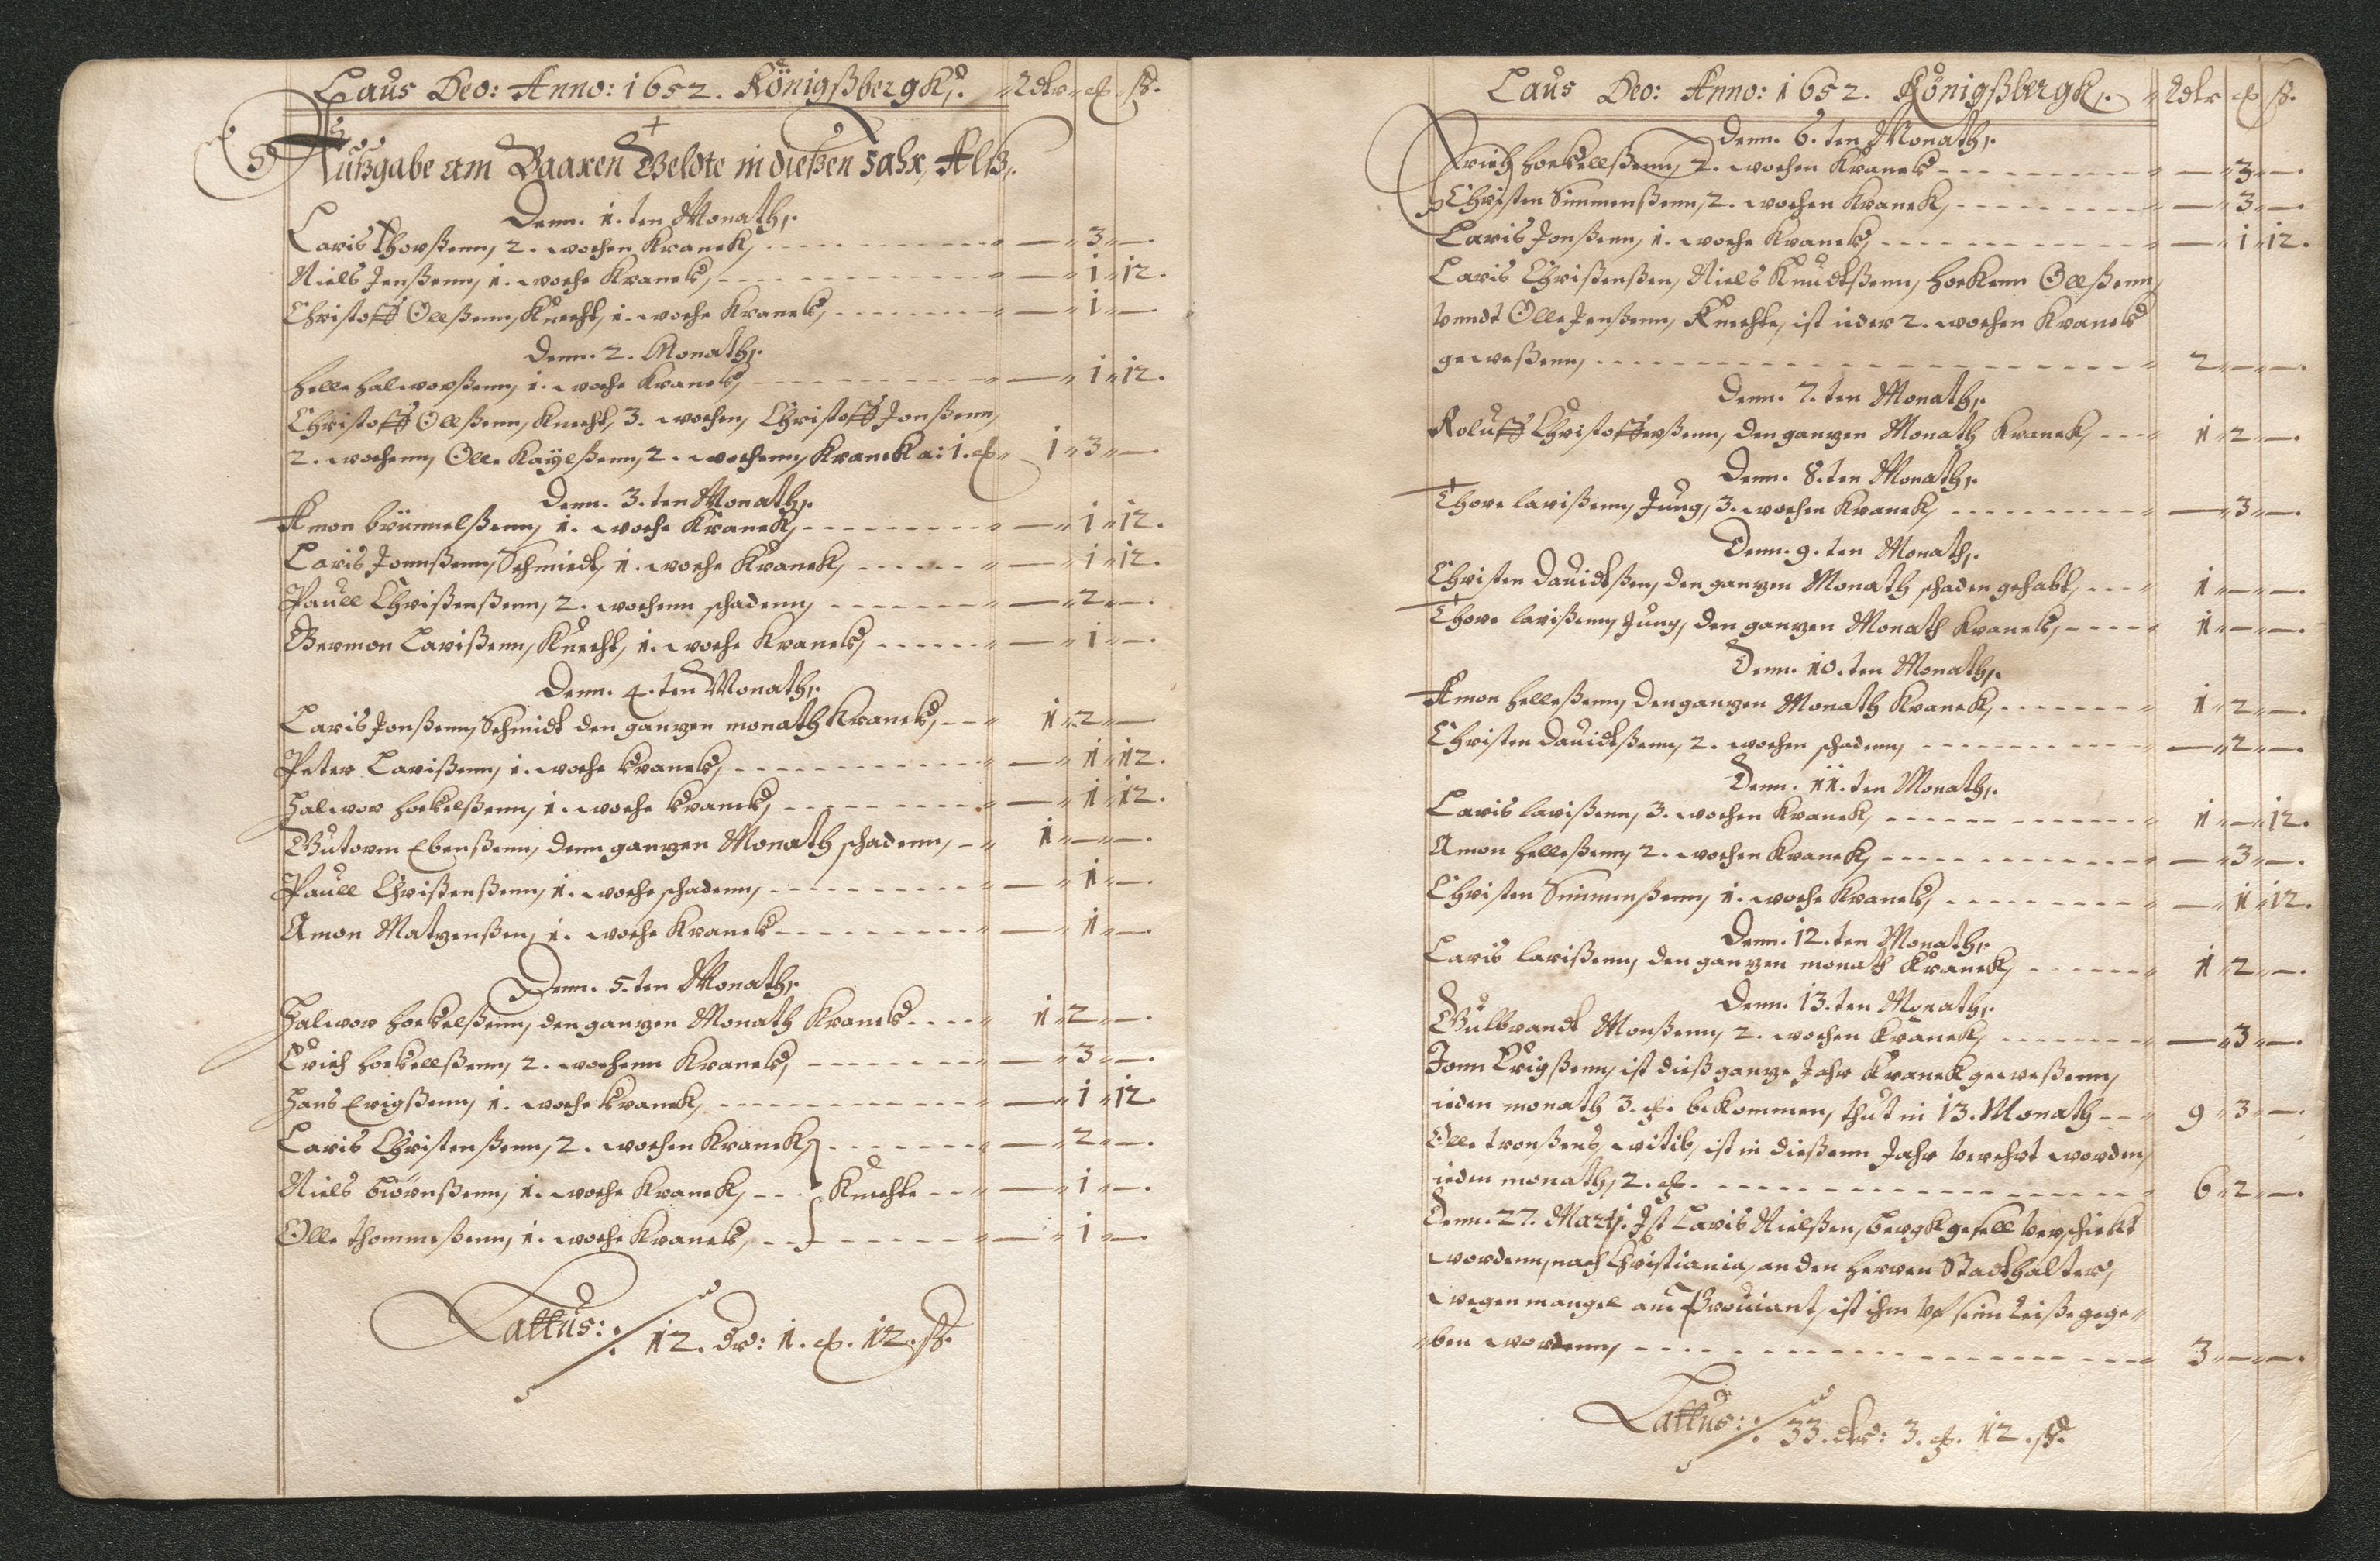 Laus Deo: Anno: 1652. Königßbergk. Rdlr ß.
Außgabe am Baaren Geldte in dießen Jahr, Alß.
Denn. 1. ten Monath.
Laris Thorßenn, 2. wochen Kranck, — 3 —
Niels Jenßenn, 1. woche Kranck, — 1 12.
Christoff Ollßenn, Knecht, 1. woche Kranck, — 1 —
Denn. 2. Monath.
Helle Halworßenn, 1. woche Kranck, — 1 12.
Christoff Ollßenn, Knecht, 3. wochen, Christoff Jonßenn,
2. wochenn, Olle Kaÿlßenn, 2. wochenn, Kranck a: 1. 1 3 —
Denn. 3. ten Monath.
Amon brünnelßenn, 1. woche Kranck, — 1 12.
Laris Jonnßenn, Schmiedt, 1. woche Kranck, — 1 12.
Paull Chrißenßenn, 2. wochenn schadenn, — 2 —
Germon Larißenn, Knecht, 1. woche Kranck, — 1 —
Denn. 4. ten Monath.
Laris Jonßenn, Schmidt den gantzen monath Kranck, 1 2 —
Peter Larißenn, 1. woche kranck, — 1 12.
Halwor Hoekelßenn, 1. woche kranck, — 1 12.
Gutorm Ebenßenn, denn gantzen Monath schadenn, 1 — —
Paull Chrißenßenn, 1. woche schadenn, — 1 —
Amon Matzenßen, 1. woche Kranck — 1 —
Denn. 5. ten Monath.
Halwor Hoekelßenn, den gantzen Monath Kranck 1 2 —
Erich Hoekellßenn, 2. wochenn Kranck, — 3 —
Hans Erigßenn, 1. woche kranck, — 1 12.
Laris Christenßenn, 2. wochen Kranck, — 2 —
Niels Biörnßenn, 1. woche Kranck, Knechte — 1 —
Olle Thommeßenn, 1. woche Kranck, — 1 —
Lattus: 12. Dr: 1. 12. ß.
Laus Deo: Anno: 1652. Königßbergk. Rdlr ß.
Denn. 6. ten Monath.
Erich Hoekellßenn, 2. wochen Kranck — 3 —
Christen Simmenßenn, 2. wochen Kranck, — 3 —
Laris Jonßenn, 1. woche Kranck, — 1 12.
Laris Chrißenßen, Niels Knudtßenn, Hoekenn Ollßenn,
vnndt Olle Jenßenn, Knechte, ist ieder 2. wochen Kranck
geweßenn, 2 — —
Denn. 7. ten Monath.
Roluff Christofferßenn, den gantzen Monath Kranck, 1 2 —
Denn. 8. ten Monath.
Thore larißenn, Jung, 3. wochen Kranck, — 3 —
Denn. 9. ten Monath.
Christen Dauidtßen, den gantzen Monath schaden gehabt, 1 — —
Thore larißenn, Jung, den gantzen Monath Kranck, 1 — —
Denn. 10. ten Monath.
Amon Helleßenn, den gantzen Monath Kranck, 1 2 —
Christen Dauidtßenn, 2. wochen schadenn, — 2 —
Denn. 11. ten Monath.
Laris larißenn, 3. wochen Kranck, 1 — 12.
Amon Helleßenn, 2. wochen Kranck, — 3 —
Christen Simmenßenn, 1. woche Kranck, — 1 12.
Denn. 12. ten Monath.
Laris larißenn, den gantzen monath Kranck, 1 2 —
Denn. 13. ten Monath.
Gulbrandt Monßenn, 2. wochen Kranck, — 3 —
Jonn Erigßenn, ist dieß gantze Jahr Kranck geweßenn,
ieden monath 3. bekommen, thut in 13. Monath 9 3 —
Olle tronßens witib, ist in dießenn Jahr verehrt worden,
ieden monath, 2. 6 2 —
Denn. 27. Martj. Ist Laris Nielßen, bergk gesell verschickt
wordenn, nach Christiania, an den Herren Stadthalter,
wegen mangel am Prouiant, ist ihm vf seine Reiße gege
ben wordenn, 3 — —
Lattus: 33. dlr: 3. 12. ß.